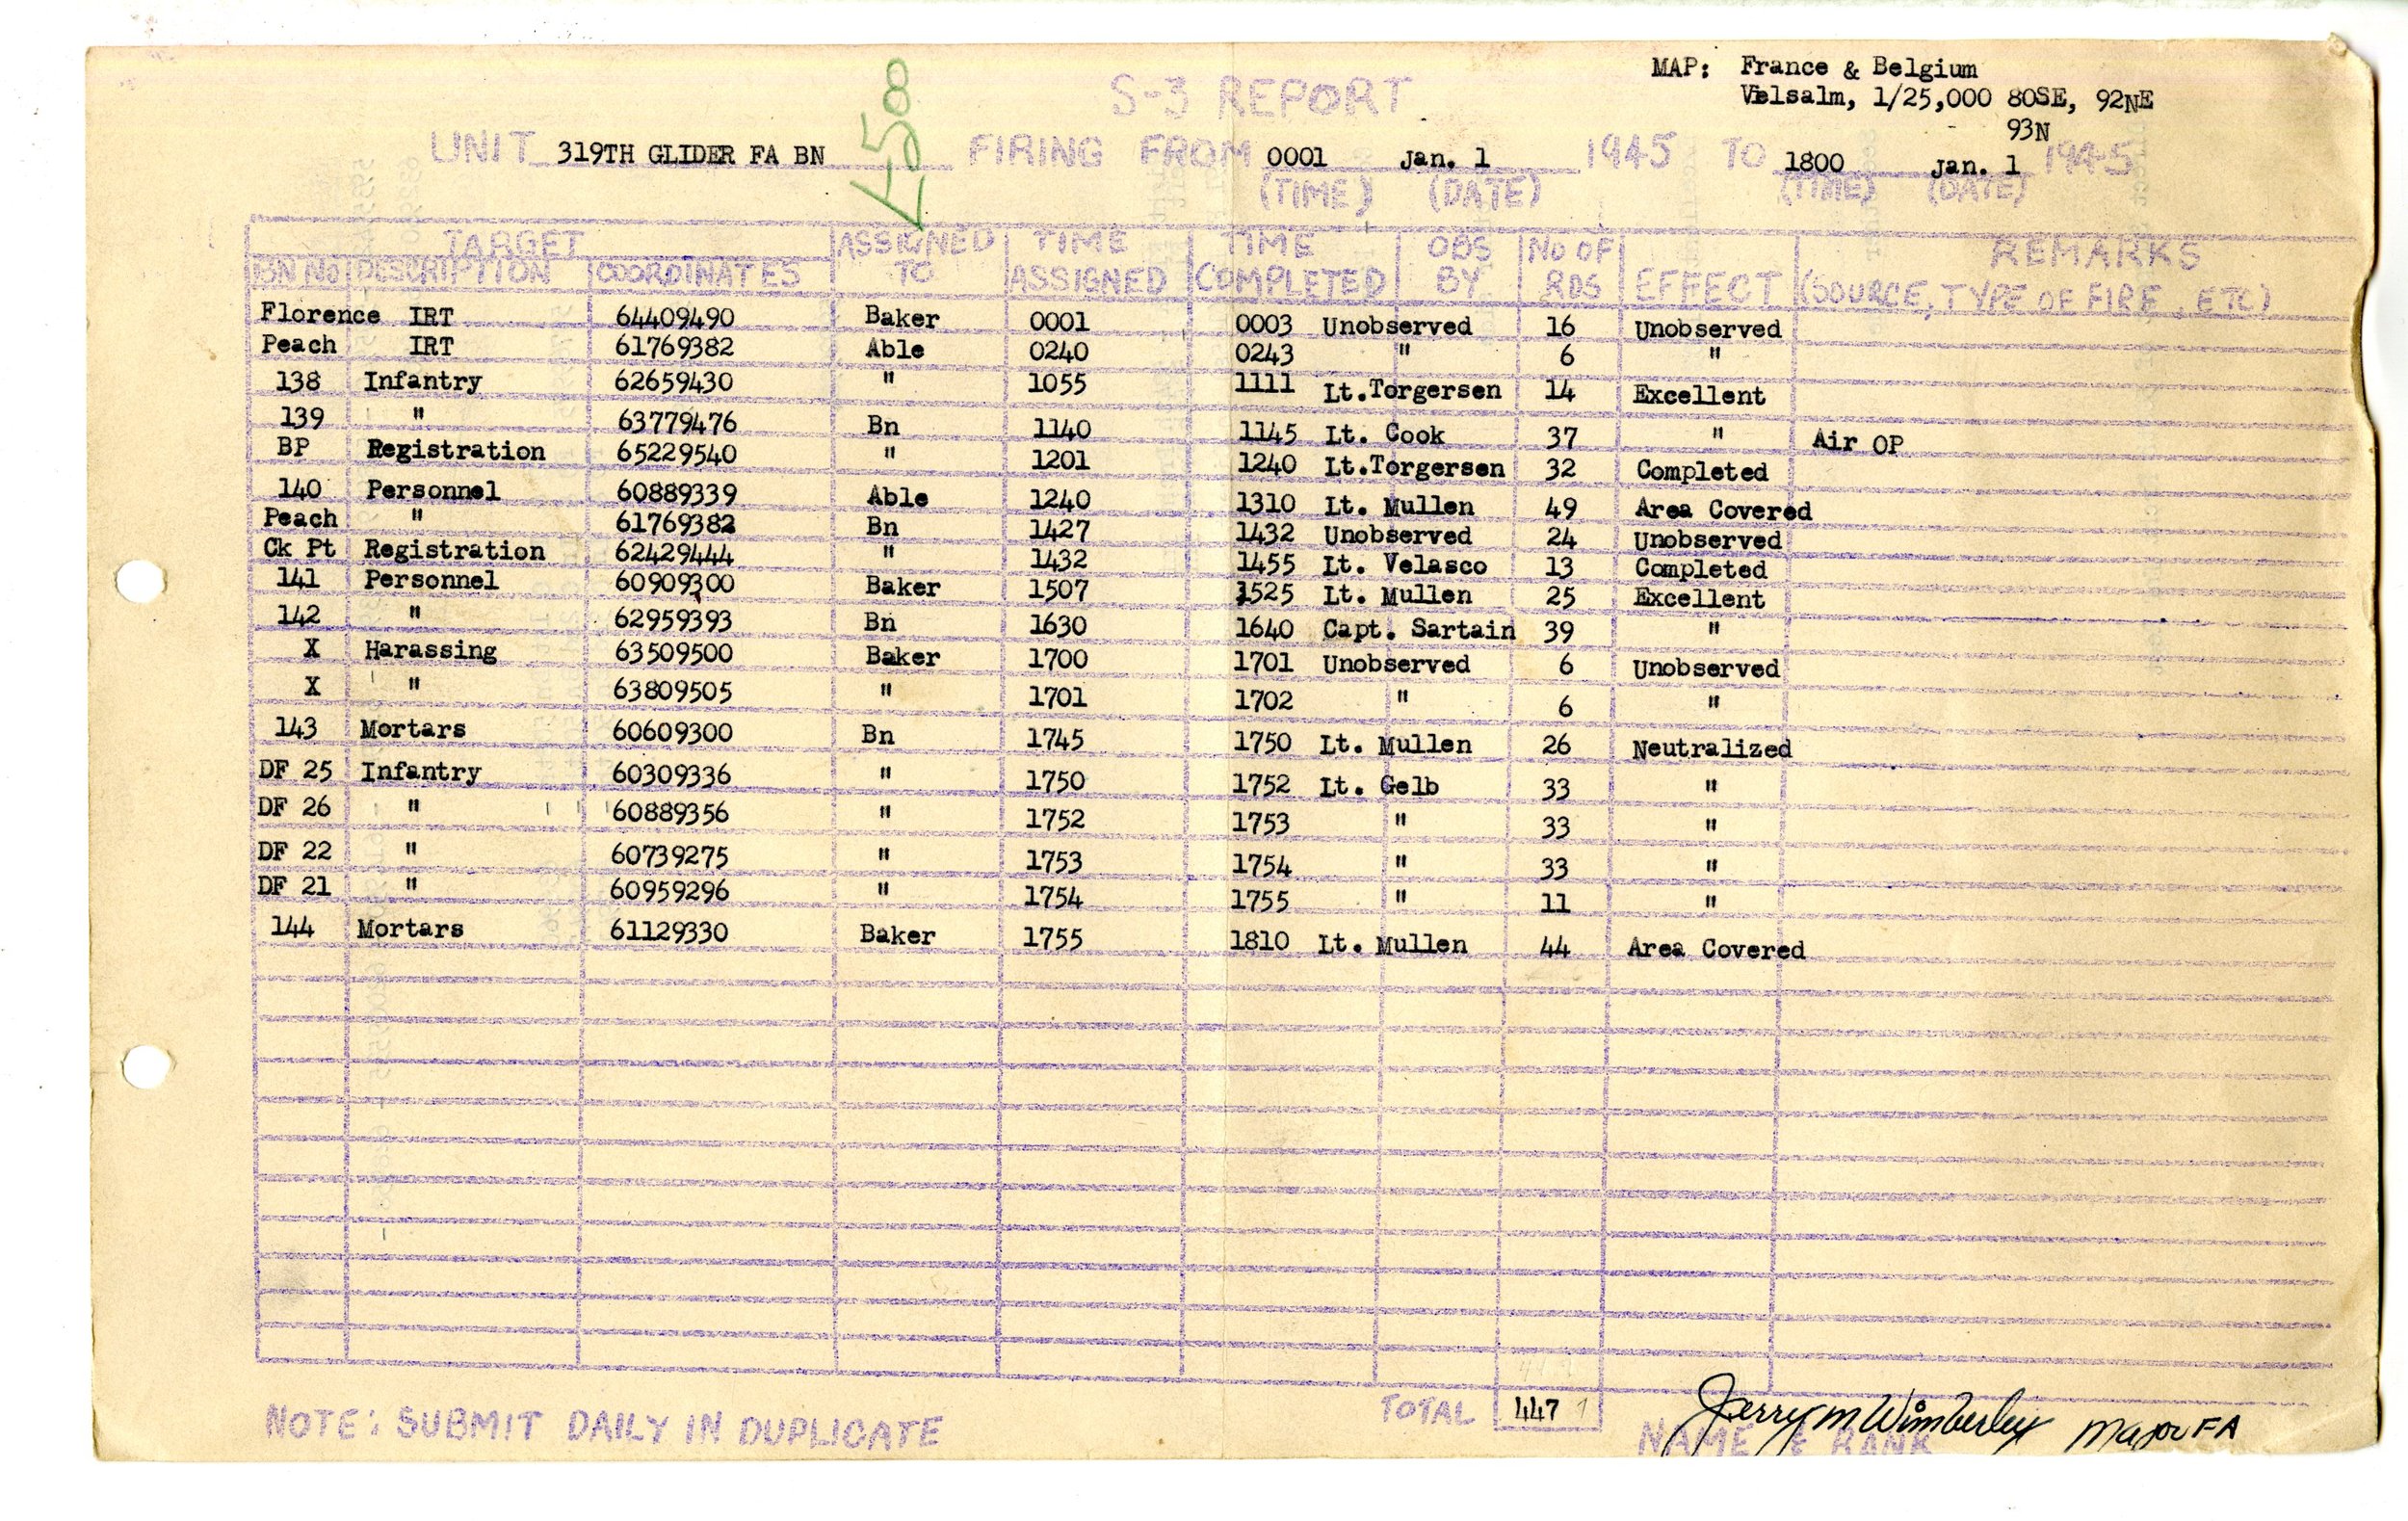 MAP: France & Belgium
Vielsalm, 1/25,000 80SE, 92NE
93N
S-3 REPORT
<58
UNIT 319TH GLIDER FA BN FIRING FROM 0001 Jan. 1 1945 TO 1800 Jan. 1 1945
(TIME) (DATE) (TIME) (DATE)
TARGET ASSIGNED TO TIME ASSIGNED TIME COMPLETED OBS BY No OF RDS EFFECT REMARKS
BN NO DESCRIPTION COORDINATES (SOURCE, TYPE OF FIRE, ETC)
Florence IRT 64409490 Baker 0001 0003 Unobserved 16 Unobserved
Peach IRT 61769382 Able 0240 0243 " 6 "
138 Infantry 62659430 " 1055 1111 Lt.Torgersen 14 Excellent
139 " 63779476 Bn 1140 1145 Lt. Cook 37 " Air OP
BP Registration 65229540 " 1201 1240 Lt.Torgersen 32 Completed
140 Personnel 60889339 Able 1240 1310 Lt. Mullen 49 Area Covered
Peach " 61769382 Bn 1427 1432 Unobserved 24 Unobserved
Ck Pt Registration 62429444 " 1432 1455 Lt. Velasco 13 Completed
141 Personnel 60909300 Baker 1507 1525 Lt. Mullen 25 Excellent
142 " 62959393 Bn 1630 1640 Capt. Sartain 39 "
X Harassing 63509500 Baker 1700 1701 Unobserved 6 Unobserved
X " 63809505 " 1701 1702 " 6 "
143 Mortars 60609300 Bn 1745 1750 Lt. Mullen 26 Neutralized
DF 25 Infantry 60309336 " 1750 1752 Lt. Gelb 33 "
DF 26 " 60889356 " 1752 1753 " 33 "
DF 22 " 60739275 " 1753 1754 " 33 "
DF 21 " 60959296 " 1754 1755 " 11 "
144 Mortars 61129330 Baker 1755 1810 Lt. Mullen 44 Area Covered
NOTE: SUBMIT DAILY IN DUPLICATE TOTAL 447 Jerry M Wimberley Major FA
NAME & RANK